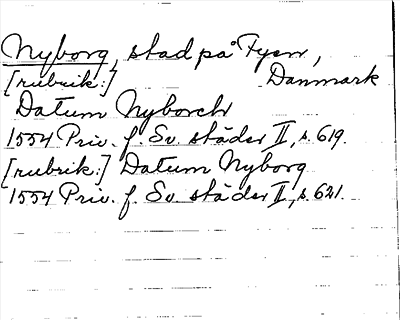 Nyborg, stad på Fyen,
[rubrik:] Danmark
Datum Nyborch
1554 Priv. f. Sv. städer II, s. 619.
[rubrik:] Datum Nyborg
1554 Priv. f. Sv. städer II, s. 621.